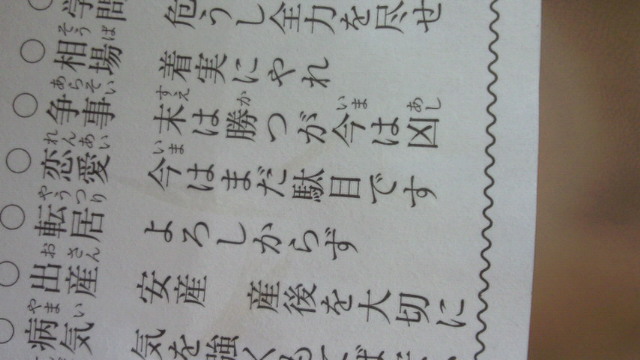 学問 危うし全力を尽せ
相場 着実にやれ
争事 末は勝つが今は凶
恋愛 今はまだ駄目です
転居 よろしからず
出産 安産 産後を大切に
病気 気を強く